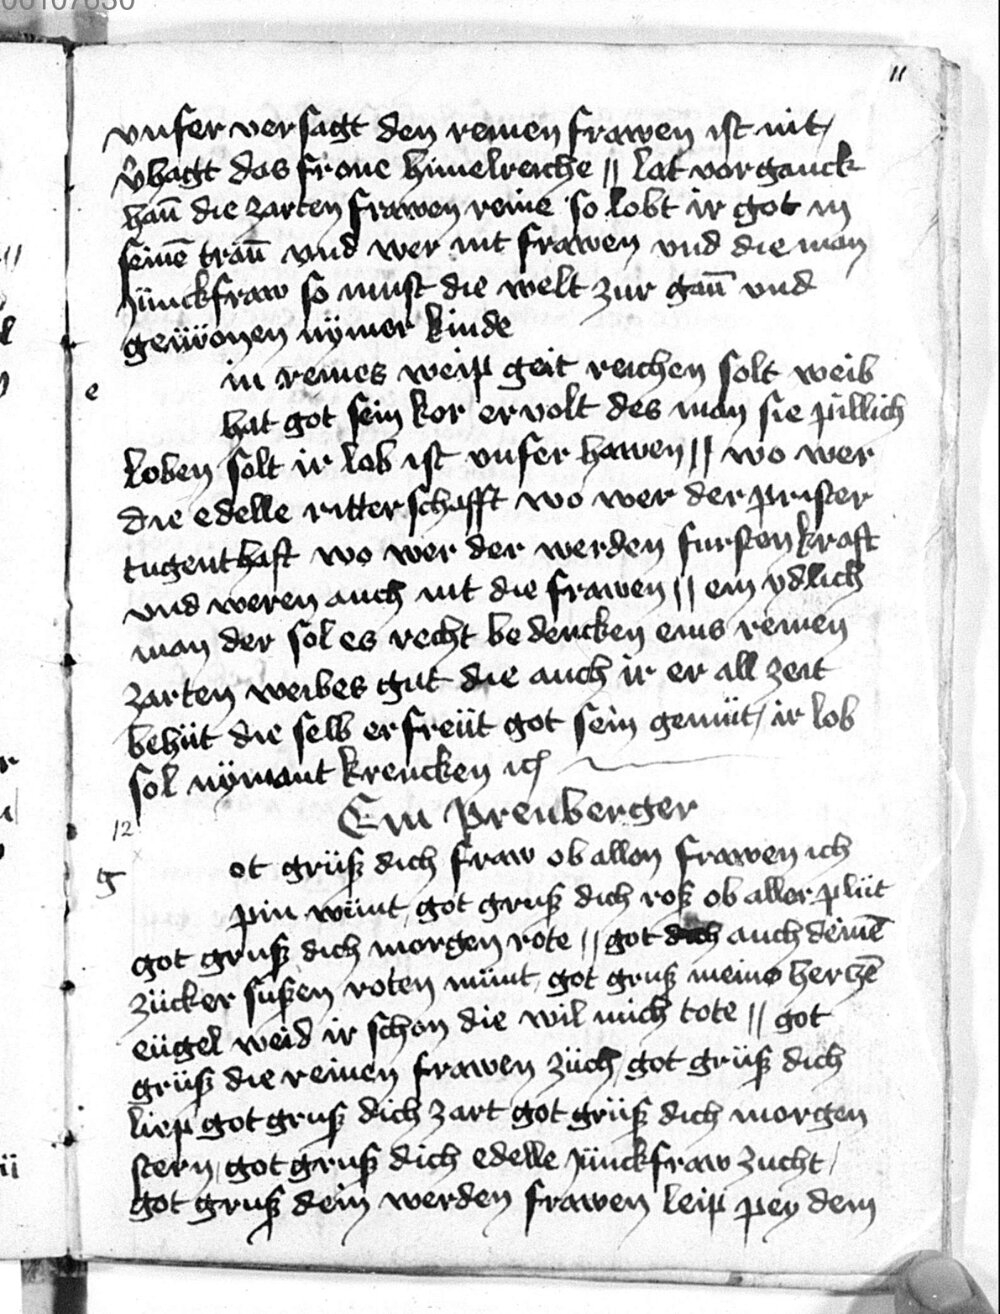 00107650
11
vnser versagt den reinen frawen ist nit /
v̈bagt das frone himelreiche // lat vorganck
han̄ die zarten frawen reine so lobt ir got in
seinē tran̄ vnd wer nit frawen vnd die man
Jünckfraw so must die welt zur gan̄ vnd
gewonen nÿmer kinde
e in reines weip geit reichen solt weib
hat got sein kor ervolt des man sie pillich
loben solt ir lob ist vnser hawen // wo wer
die edelle ritterschafft wo wer der prister
tugenthaft wo wer der werden fursten kraft
vnd weren auch nit die frawen // ein ydlich
man der sol es recht bedencken eins reinen
zarten weibes gut die auch ir er all zeit
behüt die selb erfreüt got sein gemüt / ir lob
sol nÿmant krencken ich
12
Ein Prenberger
g ot grüß dich fraw ob allen frawen ich
pin wünt / got gruß dich roß ob aller plüt
got gruß dich morgen rote // got dich auch deinē
zücker sußen roten münt / got gruß meine hertzē
eügel weid ir schon die wil mich tote // got
grüß die reinen frawen züch / got grüß dich
liep got gruß dich zart got grüß dich morgen
stern / got gruß dich edelle jünckfraw zucht /
got gruß dein werden frawen leip pey dem